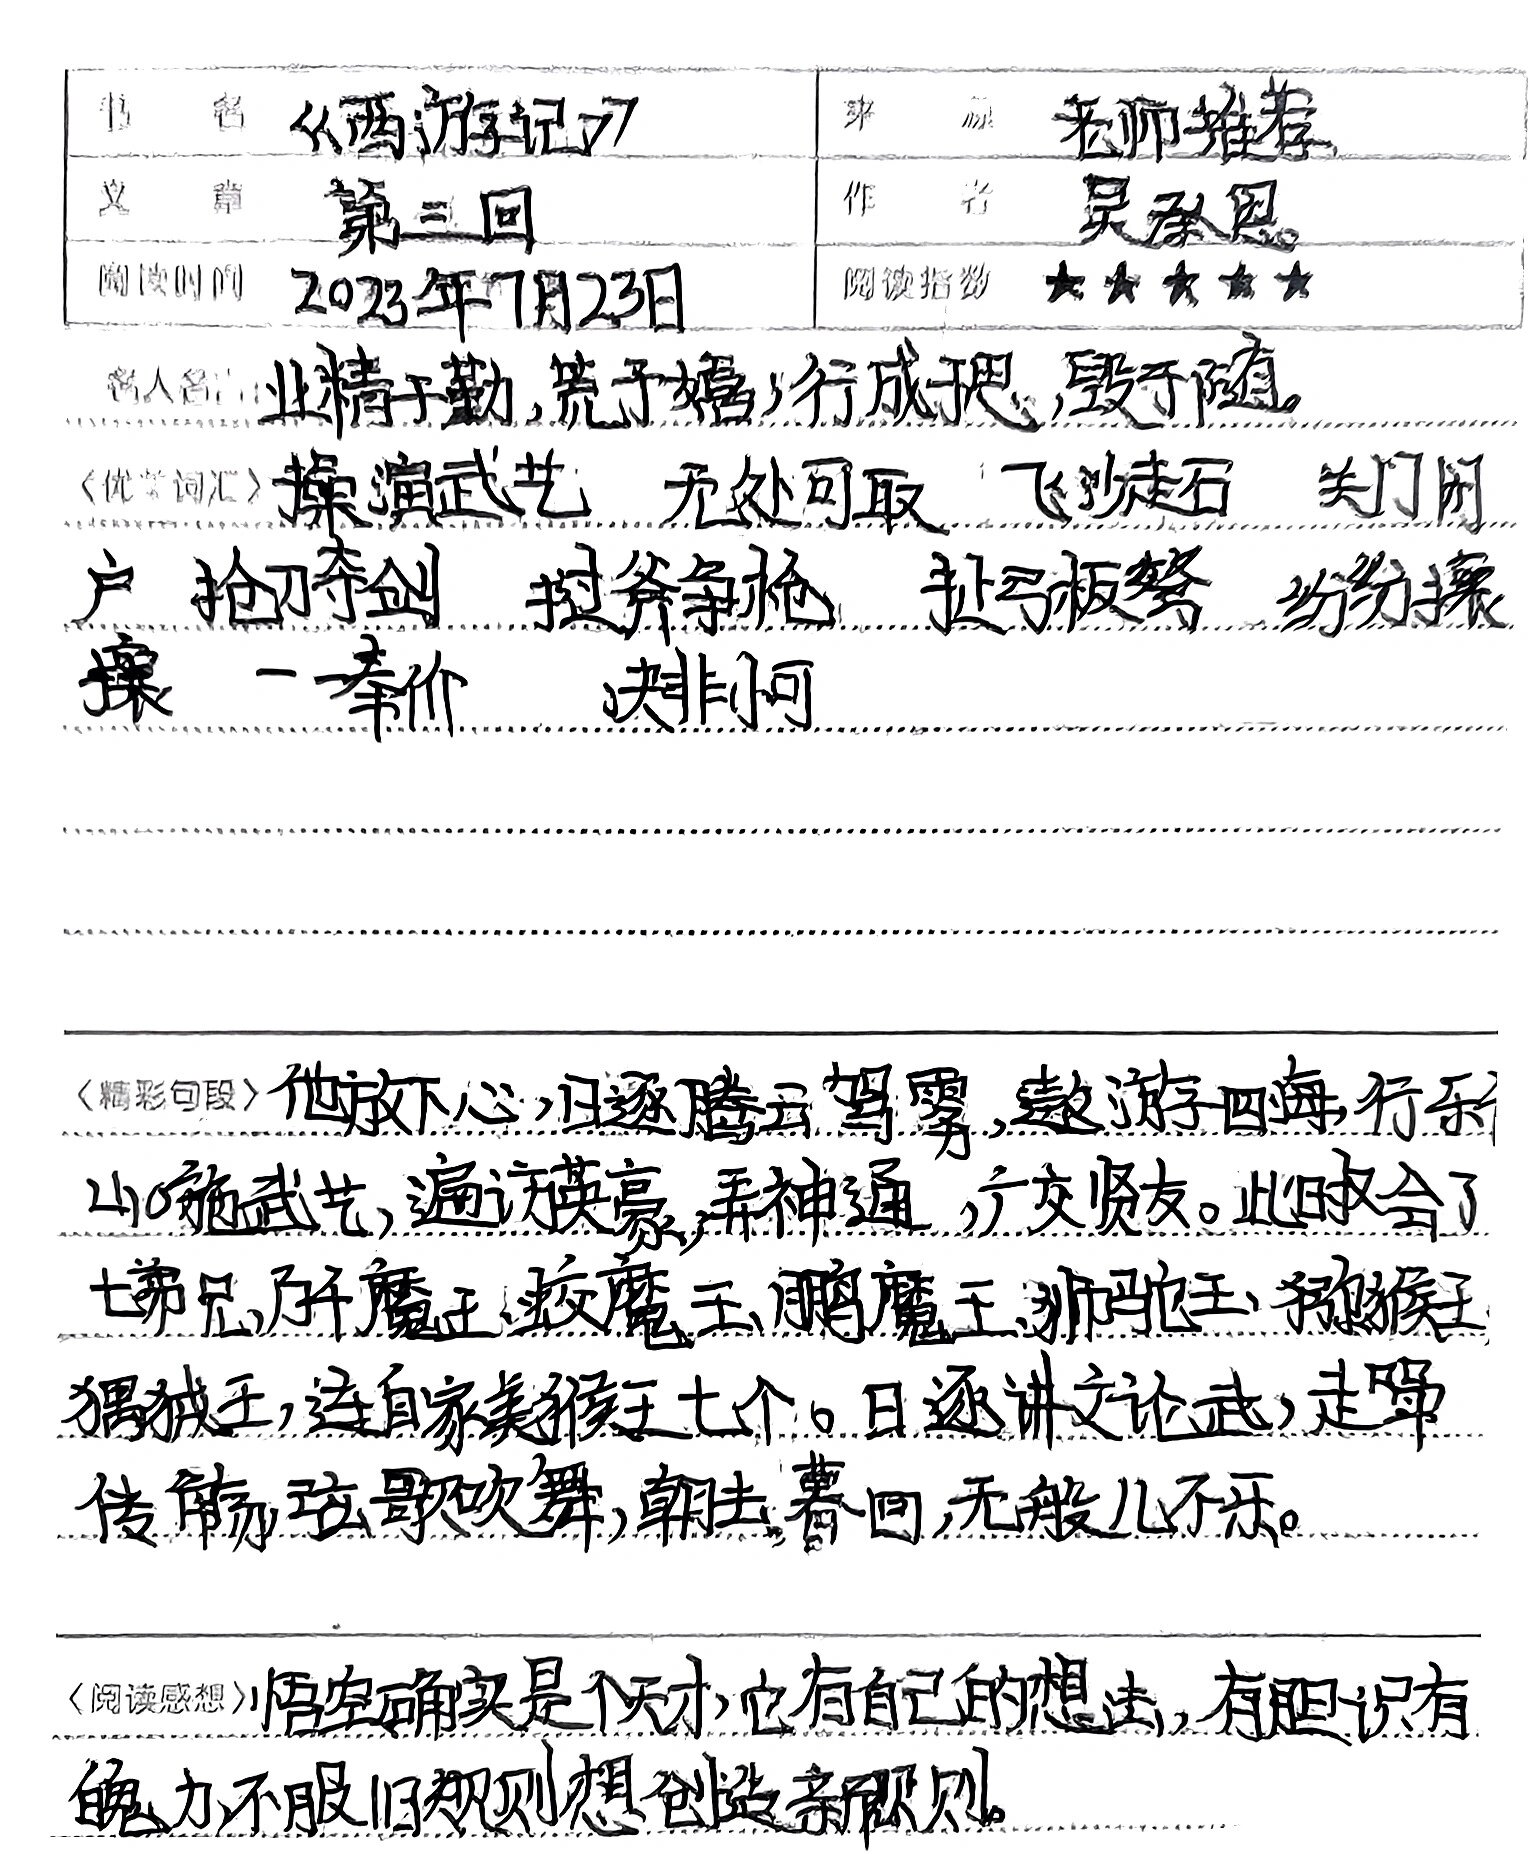 书名 《西游记》 来源 老师推荐
文章 第三回 作者 吴承恩。
阅读时间 2023年7月23日 阅读指数 ★★★★★
名人名言 业精于勤,荒于嬉;行成于思,毁于随。
〈优美词汇〉操演武艺 无处可取 飞沙走石 关门闭
户 抢刀夺剑 挝斧争枪 扯弓板弩 纷纷攘
攘 一茶价 决非小可
〈精彩句段〉他放下心,日逐腾云驾雾,遨游四海,行乐千
山。施武艺,遍访英豪,弄神通,广交贤友。此时又会了
七弟兄,乃牛魔王、蛟魔王、鹏魔王、狮驼王、猕猴王、
猾狨王,连自家美猴王七个。日逐讲文论武,走斝
传觞,弦歌吹舞,朝去暮回,无般儿不乐。
〈阅读感想〉悟空确实是个天才,它有自己的想法,有胆识有
魄力,不服旧规则想创造新规则。